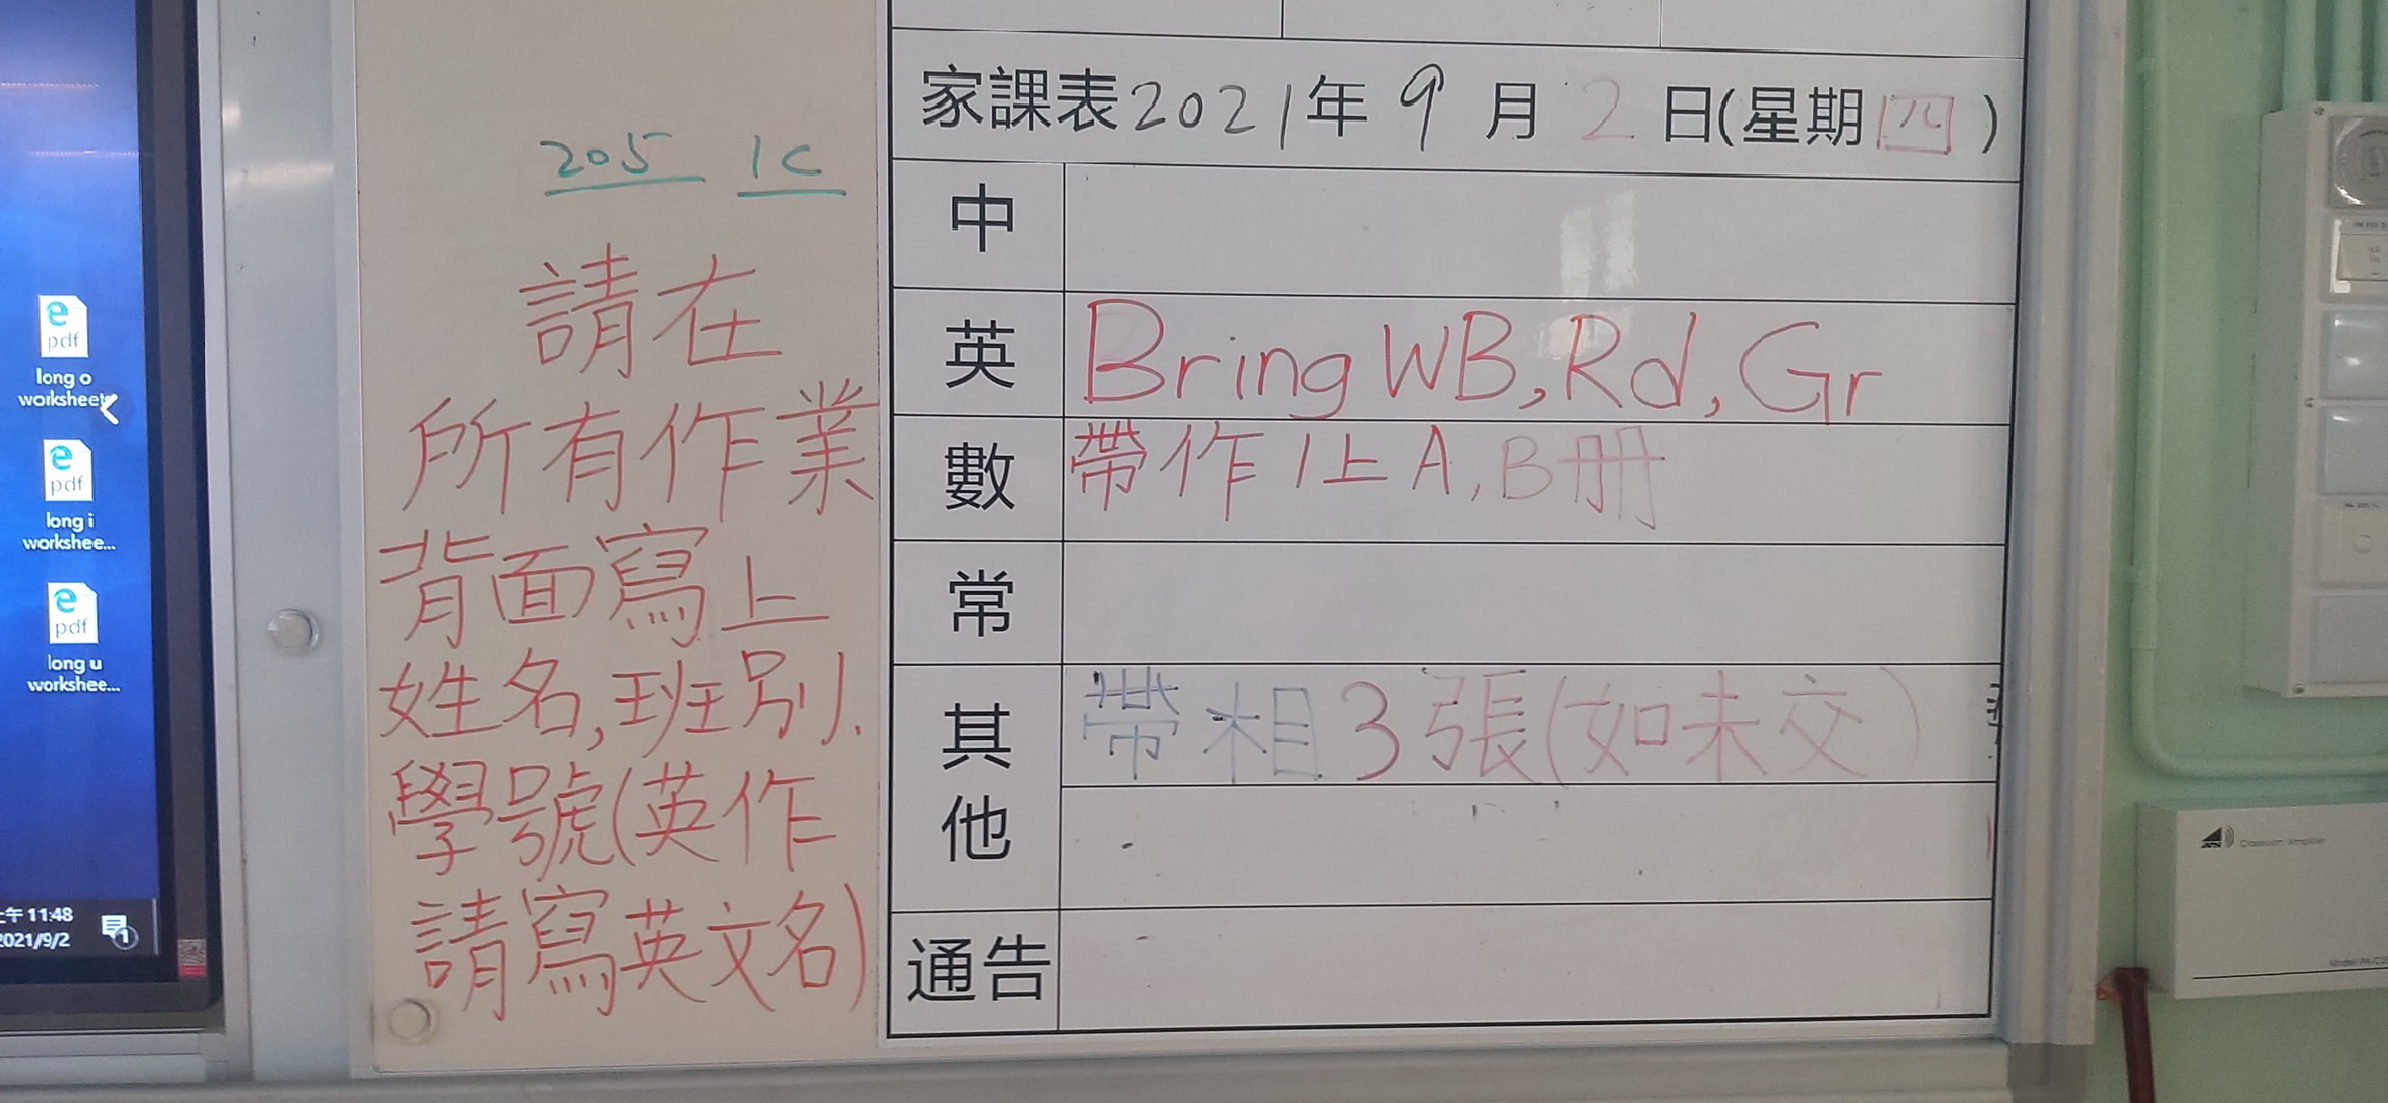 long o
worksheet
long i
workshee...
long u
workshee...
午 11:48
2021/9/2
205 1C
請在
所有作業
背面寫上
姓名,班別.
學號(英作
請寫英文名)
家課表2021年9月2日(星期四)
中
英 Bring WB, Rd, Gr
數 帶作1上A,B册
常
其他 帶相3張(如未交)
通告
pdf
pdf
pdf
Classroom Amplifier